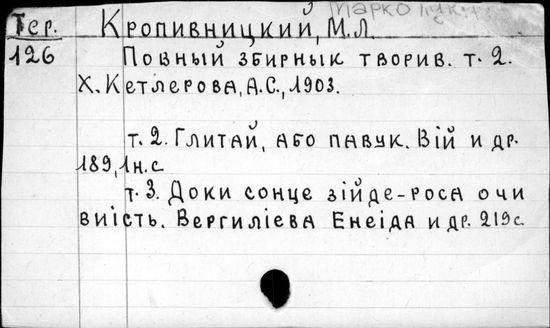 Марко
Тер. Кропивницкий, М.Л.
126 Повный збирнык творив. т. 2.
Х. Кетлерова, А.С., 1903.
т. 2. Глитай, або павук. Вій и др.
189,1н.с
т. 3. Доки сонце зійде-роса очи
виість. Вергиліева Енеіда и др. 219с.